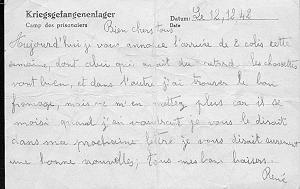 Kriegsgefangenenlager
Camp des prisonniers
Datum: Le 12.12.42
Date
Bien chers tous
Aujourd'hui je vous annonce l'arrivée de 2 colis cette
semaine, dont celui qui a du retard, les chaussettes
vont bien, et dans l'autre j'ai trouver le bon
fromage, mais ne m'en mettez plus car il se
moisi quand j'en voudrait je vous le dirait
dans ma prochaine lettre je vous dirait surement
une bonne nouvelle, tous mes bons baisers.
René